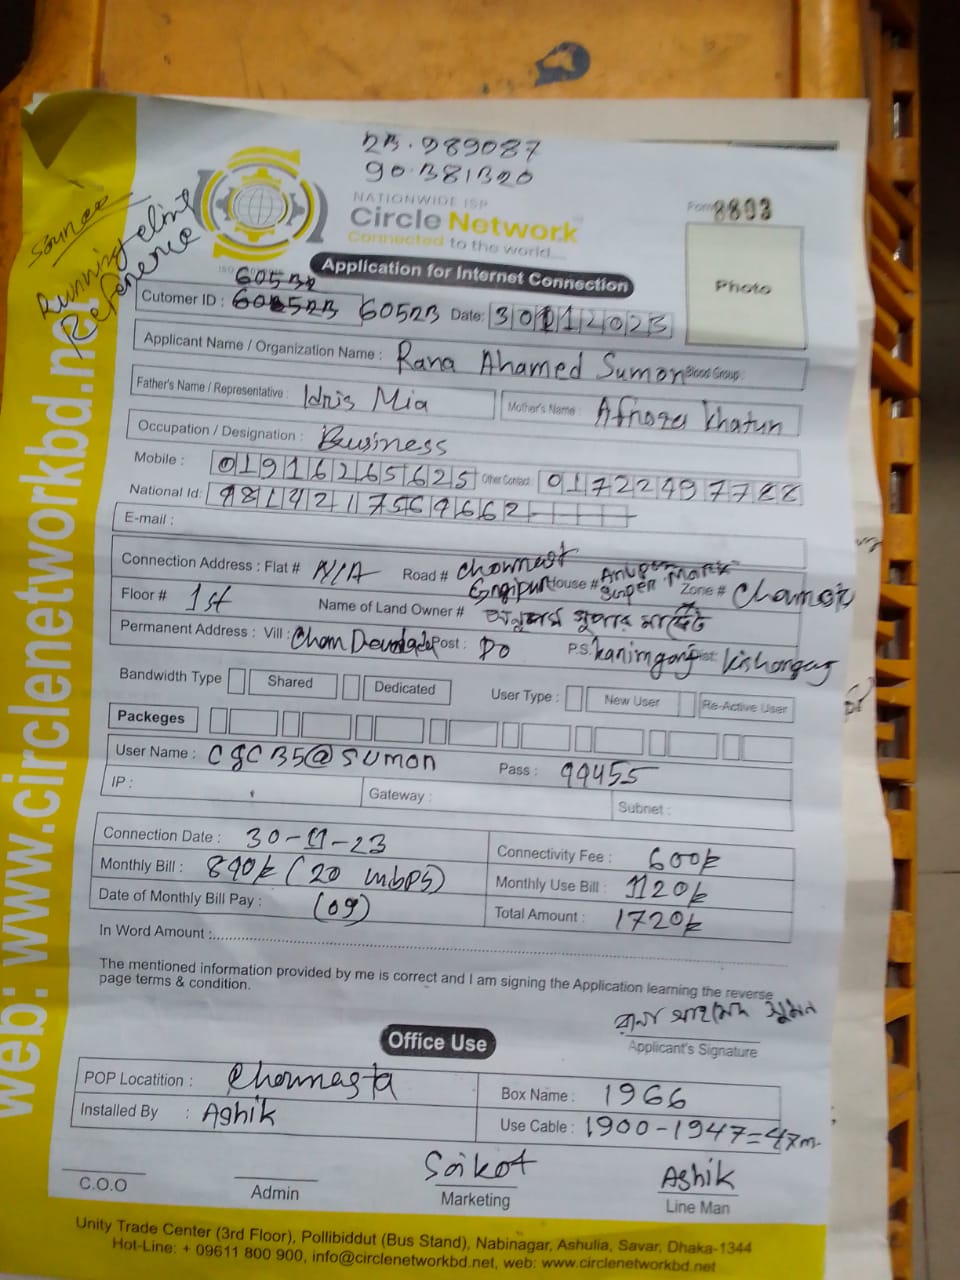 23.989087
90.381320
NATIONWIDE ISP
Circle Network
Connected to the world....
Form 8803
Photo
Source
Running client
Reference
Application for Internet Connection
Cutomer ID : 60523 Date: 30112023
Applicant Name / Organization Name : Rana Ahamed Sumon Blood Group :
Father's Name / Representative : Idris Mia Mother's Name : Afroza Khatun
Occupation / Designation : Business
Mobile : 01916265625 Other Contact : 01722497788
National Id: 9814217569662
E-mail :
Connection Address : Flat # N/A Road # House # Super Zone #
Floor # 1st Name of Land Owner # সুপার মার্কেট
Permanent Address : Vill : Post : Do P.S. Dist:
Bandwidth Type Shared Dedicated User Type : New User Re-Active User
Packeges
User Name : CgCB5@sumon Pass : 99455
IP : Gateway : Subnet :
Connection Date : 30-11-23 Connectivity Fee : 600/-
Monthly Bill : 890/- (20 mbps) Monthly Use Bill : 1120/-
Date of Monthly Bill Pay : (09) Total Amount : 1720/-
In Word Amount :
The mentioned information provided by me is correct and I am signing the Application learning the reverse
page terms & condition.
রানা আহমেদ সুমন
Applicant's Signature
Office Use
POP Locatition : Chowrasta Box Name : 1966
Installed By : Ashik Use Cable : 1900-1947=47m.
C.O.O Admin Saikot Marketing Ashik Line Man
Unity Trade Center (3rd Floor), Pollibiddut (Bus Stand), Nabinagar, Ashulia, Savar, Dhaka-1344
Hot-Line: + 09611 800 900, info@circlenetworkbd.net, web: www.circlenetworkbd.net
web: www.circlenetworkbd.net